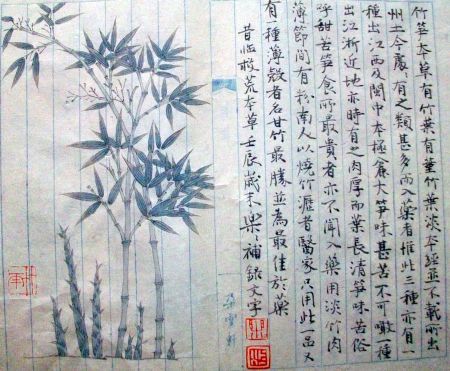 竹笋本草有竹葉有堇竹葉淡本經並不載所出
州土今處有之類甚多而入藥者惟此三種亦有一
種出江西及閩中本極麁大笋味甚苦不可噉一種
出江淅近地亦時有之肉厚而葉長清笋味苦俗
呼甜苦笋食所最貴者亦不聞入藥用淡竹肉
薄節間有粉南人以燒竹瀝者醫家只用此一品又
有一種薄殼者名甘竹最勝並為最佳於藥
昔临救荒本草壬辰歲末樂補錄文字
朵雲軒